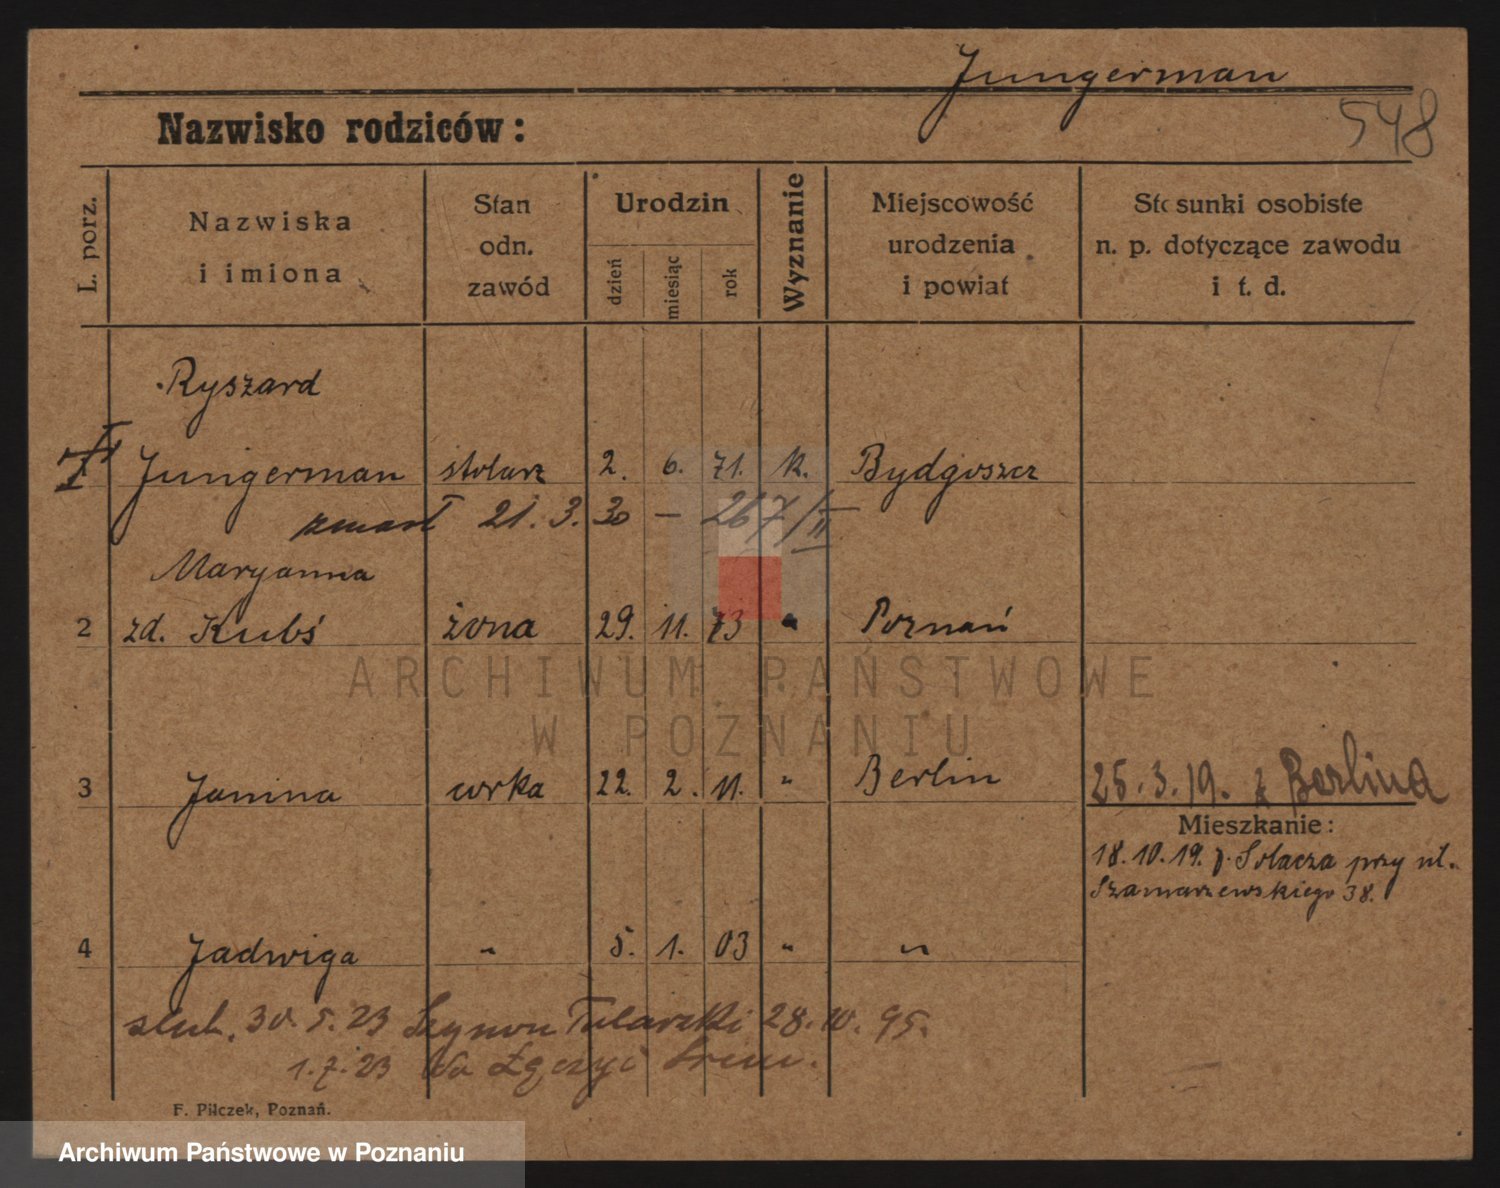 Jungerman
548
Nazwisko rodziców:
L. porz.
Nazwiska
i imiona
Stan
odn.
zawód
Urodzin
dzień
miesiąc
rok
Wyznanie
Miejscowość
urodzenia
i powiat
Stosunki osobiste
n. p. dotyczące zawodu
i t. d.
Ryszard
Jungerman stolarz 2. 6. 71. k. Bydgoszcz
zmarł 21. 3. 30 — 267/II
Maryanna
2 zd. Kubś żona 29. 11. 73 " Poznań
ARCHIWUM PAŃSTWOWE
W POZNANIU
3 Janina córka 22. 2. 11. " Berlin 25.3.19. z Berlina
Mieszkanie:
18.10.19. Sołacza przy ul.
Szamarzewskiego 38.
4 Jadwiga " 5. 1. 03 " "
ślub. 30.5.23 Szymon Tularzki 28.10.95.
1.7.23 Śrem.
F. Pilczek, Poznań.
Archiwum Państwowe w Poznaniu